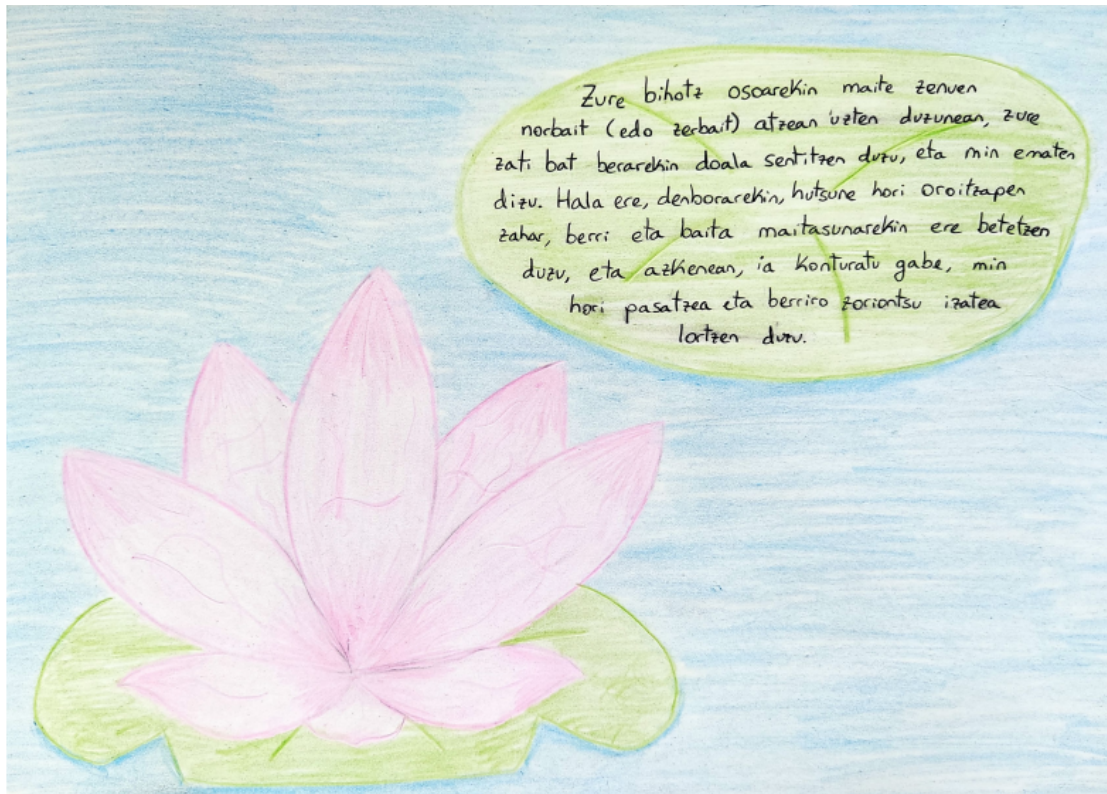 Zure bihotz osoarekin maite zenuen
norbait (edo zerbait) atzean uzten duzunean, zure
zati bat berarekin doala sentitzen duzu, eta min ematen
dizu. Hala ere, denborarekin, hutsune hori oroitzapen
zahar, berri eta baita maitasunarekin ere betetzen
duzu, eta azkenean, ia konturatu gabe, min
hori pasatzea eta berriro zoriontsu izatea
lortzen duzu.